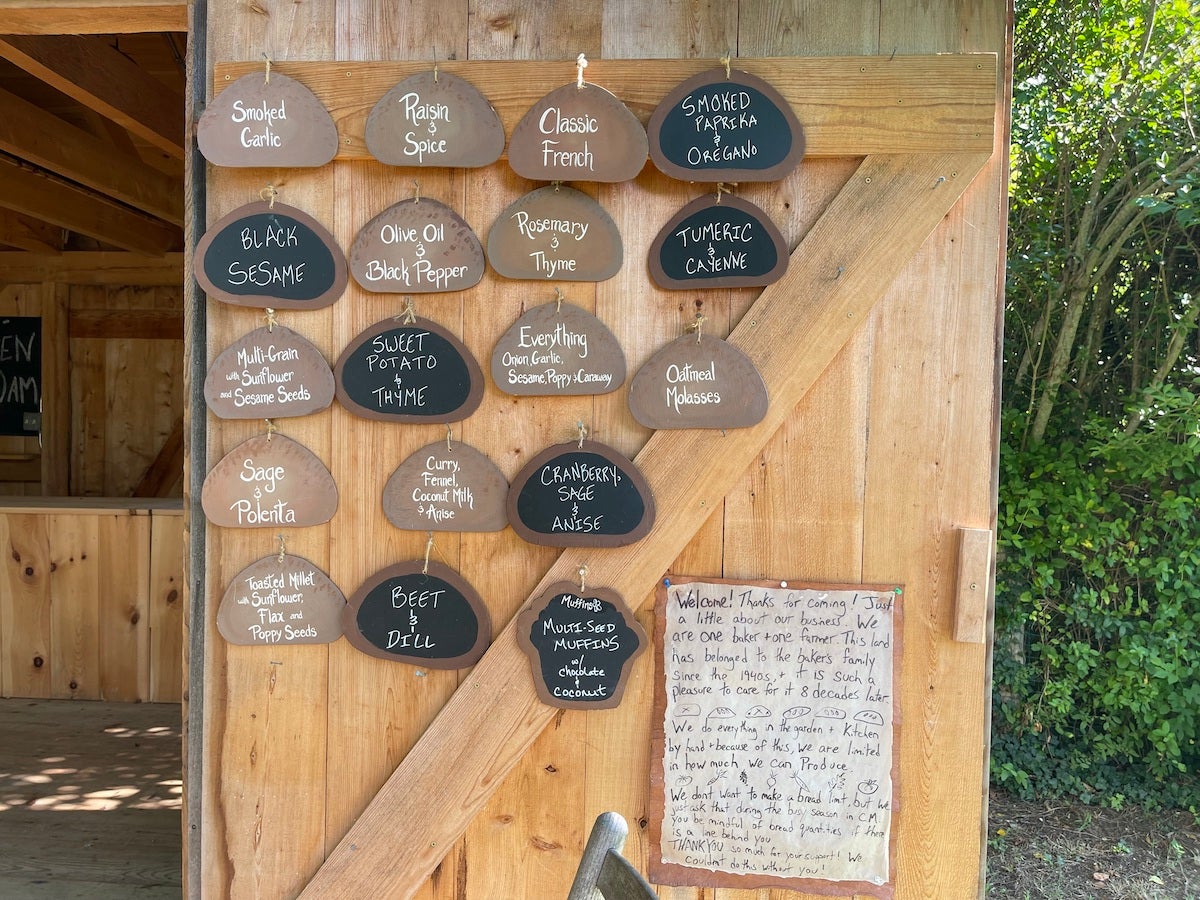 Smoked
Garlic
Raisin
&
Spice
Classic
French
SMOKED
PAPRIKA
&
OREGANO
BLACK
SESAME
Olive Oil
&
Black Pepper
Rosemary
&
Thyme
TUMERIC
&
CAYENNE
Multi-Grain
with Sunflower
and Sesame Seeds
SWEET
POTATO
&
THYME
Everything
Onion, Garlic,
Sesame, Poppy & Caraway
Oatmeal
Molasses
EN
DAM
Sage
&
Polenta
Curry,
Fennel,
Coconut Milk
& Anise
CRANBERRY,
SAGE
&
ANISE
Toasted Millet
with Sunflower,
Flax and
Poppy Seeds
BEET
&
DILL
Muffins
MULTI-SEED
MUFFINS
w/
chocolate
&
coconut
Welcome! Thanks for coming! Just
a little about our business. We
are one baker + one farmer. This land
has belonged to the baker's family
since the 1940s, + it is such a
pleasure to care for it 8 decades later.
We do everything in the garden + kitchen
by hand + because of this, we are limited
in how much we can produce.
We dont want to make a bread limit, but we
just ask that during the busy season in C.M.
you be mindful of bread quantities if there
is a line behind you
THANK YOU so much for your support! We
couldn't do this without you!